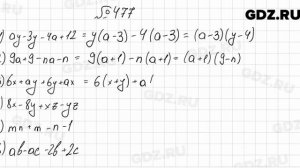 GDZ.RU
№477
1) ay-3y-4a+12 = y(a-3)-4(a-3) = (a-3)(y-4)
) 9a+9-na-n = 9(a+1)-n(a+1)=(a+1)(9-n)
) 6x+ay+6y+ax = 6(x+y)+a(
) 8x-8y+xz-yz
) mn+m-n-1
) ab-ac-2b+2c
GDZ.RU